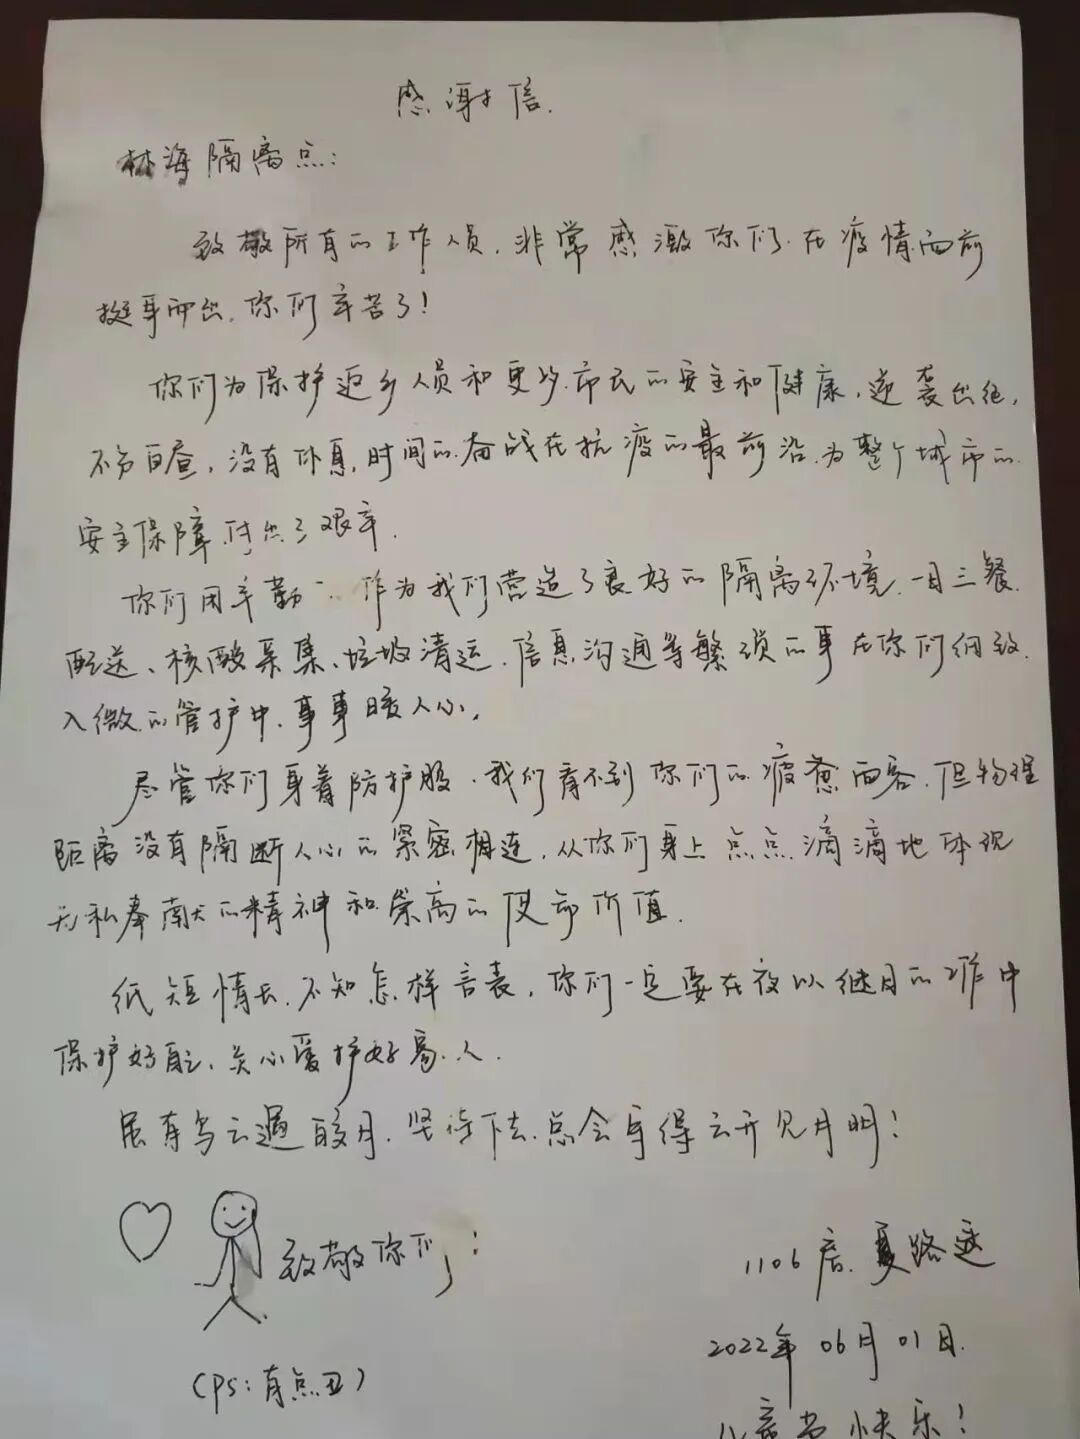 感谢信.
林海隔离点:
致敬所有的工作人员,非常感激你们在疫情面前
挺身而出.你们辛苦了!
你们为保护返乡人员和更多市民的安全和健康,逆袭出征,
不分日夜,没有休息时间的奋战在抗疫的最前沿.为整个城市的
安全保障付出了艰辛.
你们用辛勤工作为我们营造了良好的隔离环境.一日三餐
配送、核酸采集、垃圾清运、信息沟通等繁琐的事在你们细致
入微的管护中.事事暖人心.
尽管你们身着防护服.我们看不到你们的疲惫面容.但物理
距离没有隔断人心的紧密相连,从你们身上点点滴滴地体现
无私奉献的精神和崇高的使命价值.
纸短情长.不知怎样言表,你们一定要在夜以继日的工作中
保护好自己、关心爱护好家人.
虽有乌云遮皎月.坚持下去.总会守得云开见月明!
致敬你们!
(PS:有点丑)
1106房.夏路
2022年06月01日.
儿童节快乐!